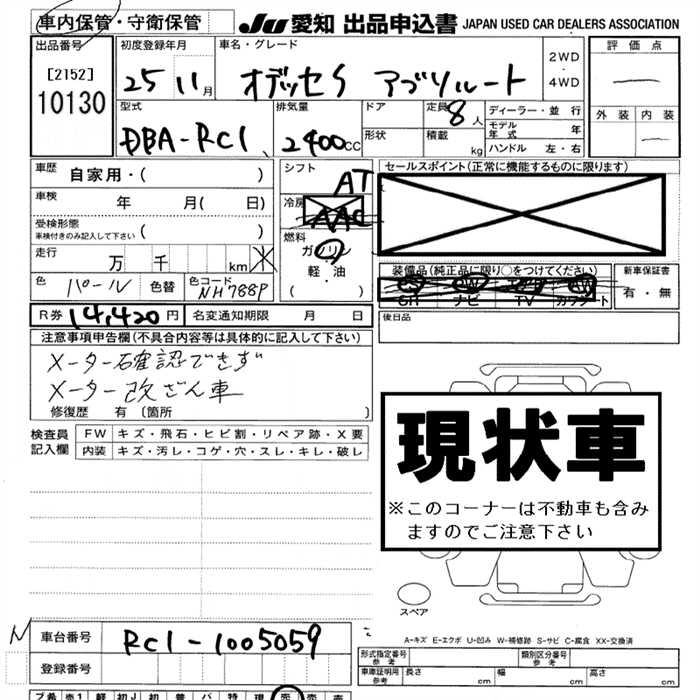 車内保管・守衛保管
JU 愛知 出品申込書 JAPAN USED CAR DEALERS ASSOCIATION
出品番号 初度登録年月 車名・グレード 評価点
[2152] 25 11月 オデッセイ アブソルート 2WD・4WD
10130 外装 内装
型式 排気量 ドア 定員 8人 ディーラー・並行
DBA-RC1 2400cc 形状 積載 kg モデル年式 年
ハンドル 左・右
車歴 自家用・( ) シフト AT セールスポイント(正常に機能するものに限ります)
車検 年 月( 日) 冷房 AAC
受検形態 ( ) 燃料
車検付きのみ記入して下さい ガソリン
走行 万 千 km 軽・油
色 パール 色替 色コード NH788P ( ・ ) 装備品(純正品に限り○をつけてください) 新車保証書
SR ナビ TV カワシート 有・無
R券 14,420円 名変通知期限 月 日 後日品
注意事項申告欄(不具合内容等は具体的に記入して下さい)
メーター確認できず
メーター改ざん車
修復歴 有 〔箇所 〕
検査員 FW キズ・飛石・ヒビ割・リペア跡・X要
記入欄 内装 キズ・汚レ・コゲ・穴・スレ・キレ・破レ
現状車
※このコーナーは不動車も含み
ますのでご注意下さい
スペア
A-キズ E-エクボ U-凹み W-補修跡 S-サビ C-腐食 XX-交換済
車台番号 RC1-1005059
登録番号
形式指定番号 参考 類別区分番号 参考
車庫証明用 参考 長さ cm 幅 cm 高さ cm